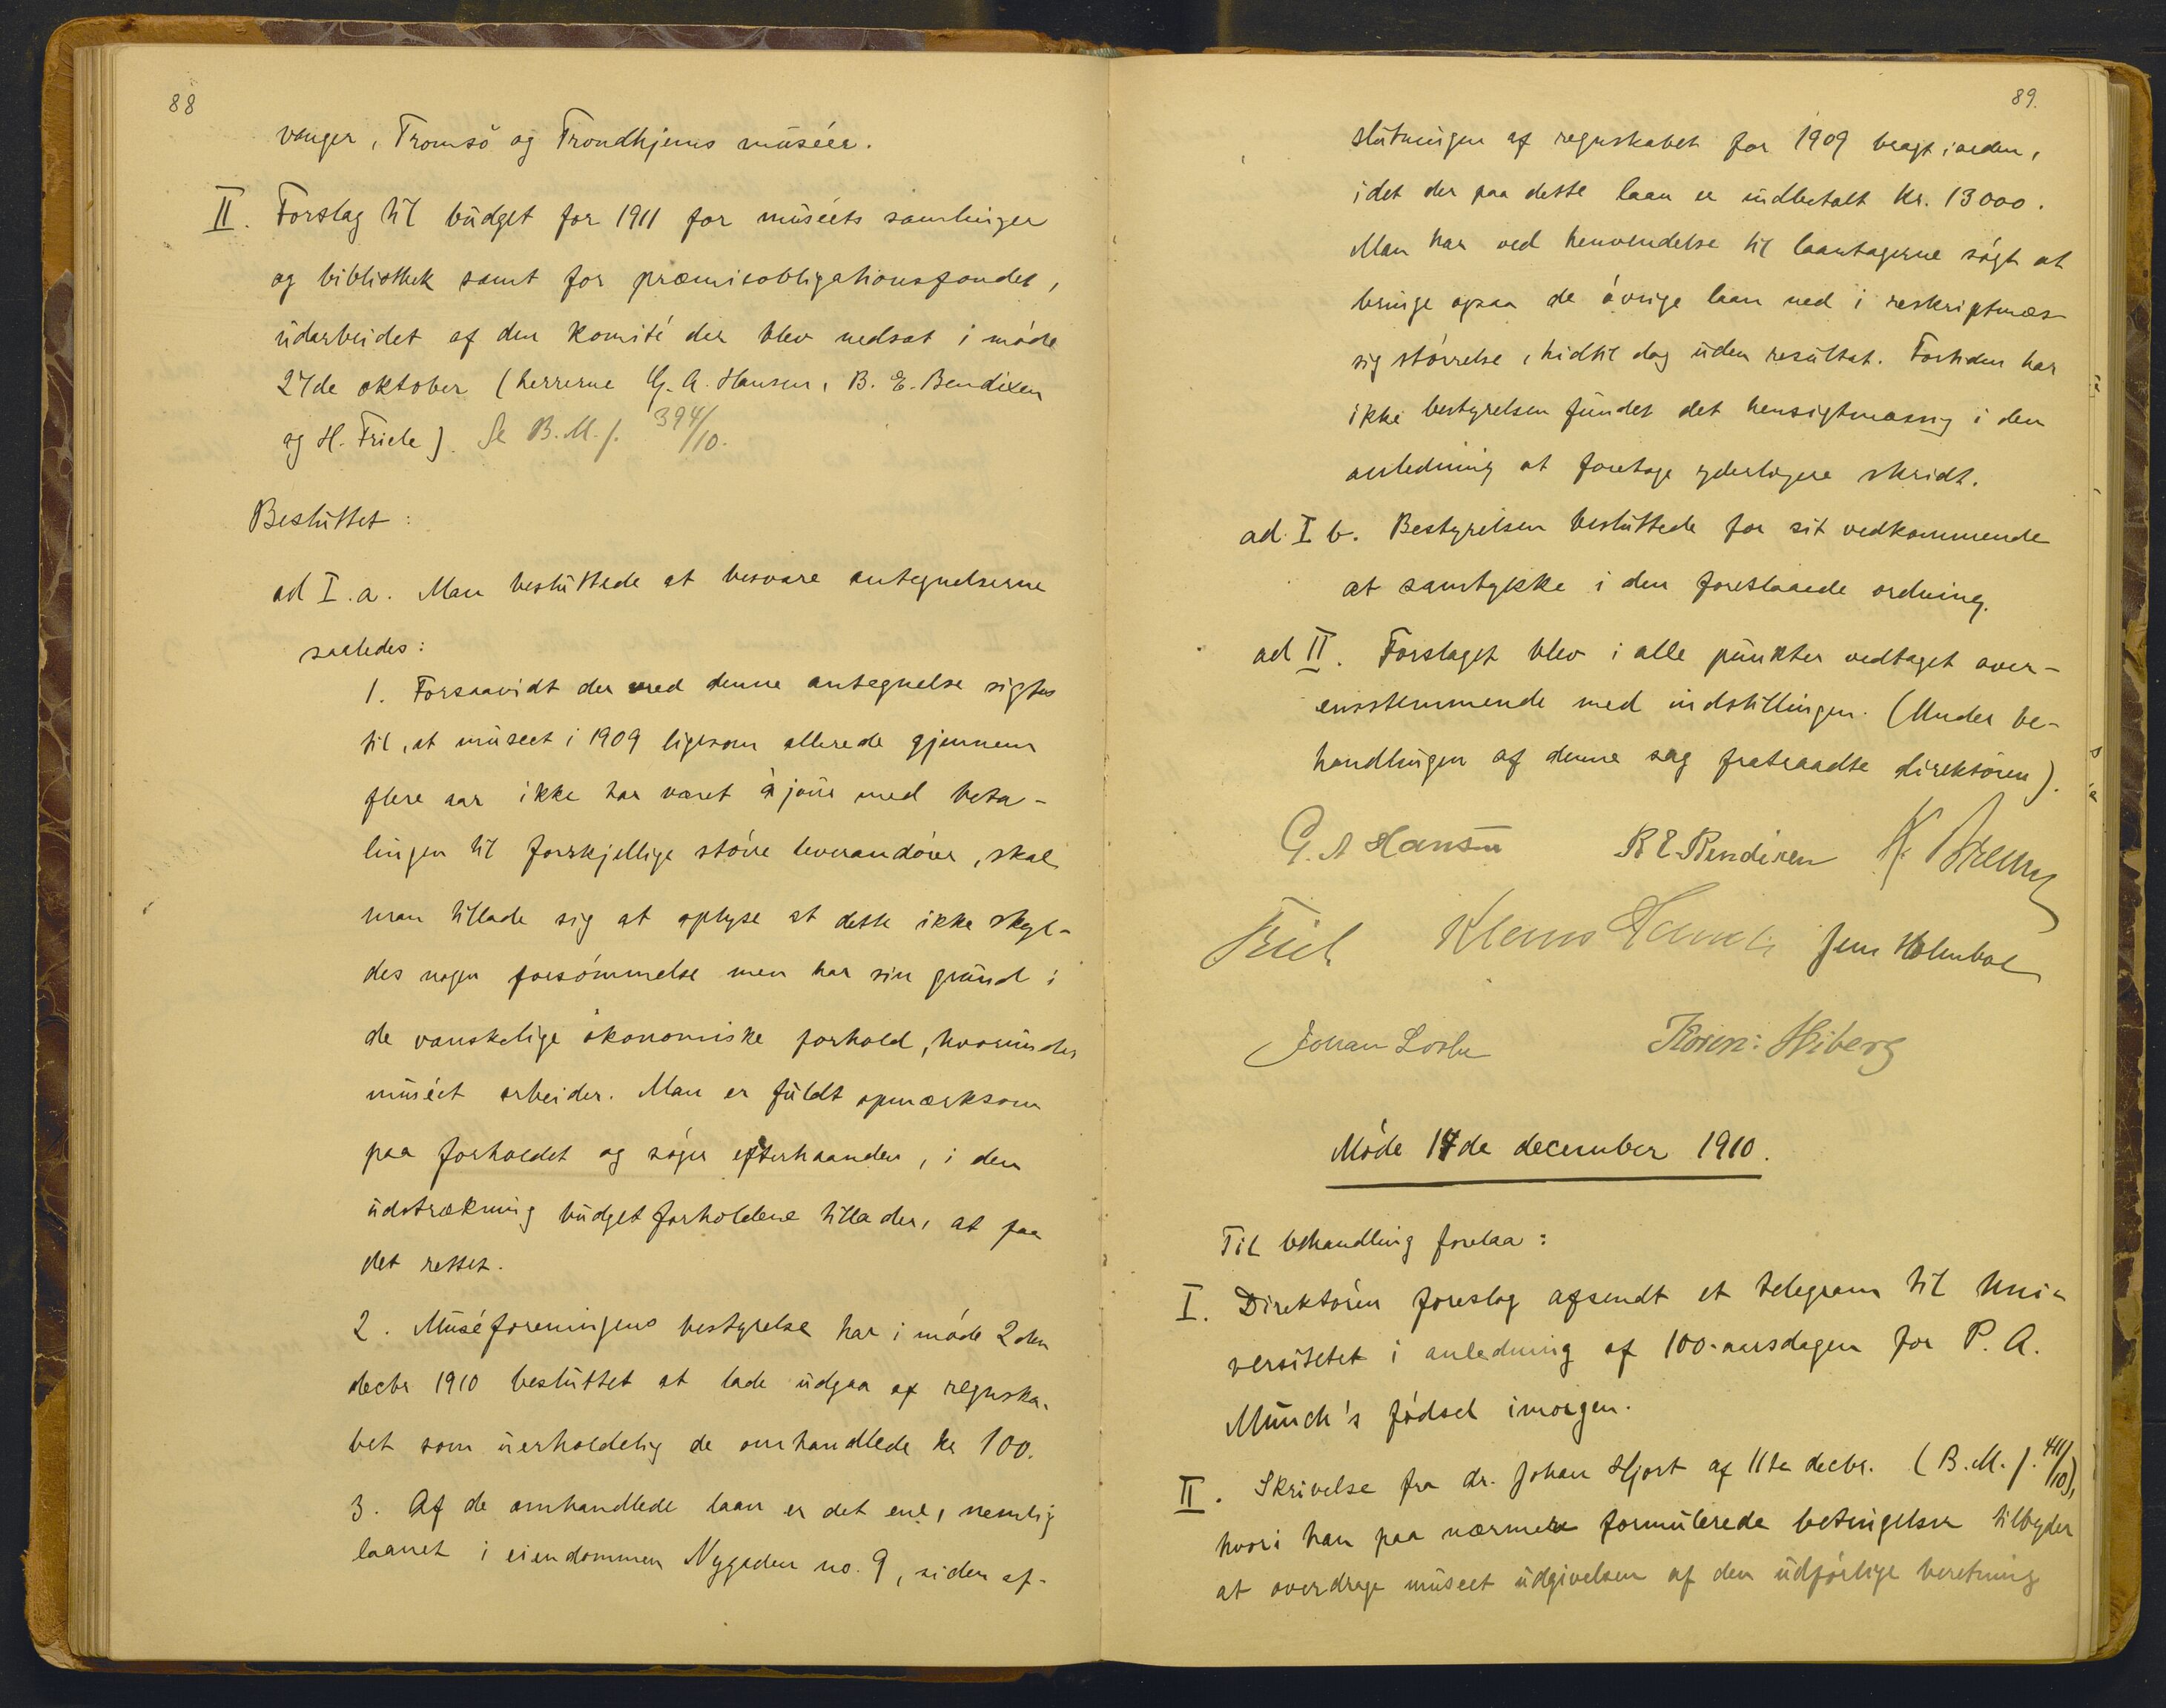 88
vanger, Tromsö og Trondhjems muséer.
II. Forslag til budget for 1911 for muséets samlinger
og bibliothek samt for præmieobligationsfondet,
udarbeidet af den komité der blev nedsat i möde
27de oktober (herrerne G. A. Hansen, B. E. Bendixen
og H. Friele). Se B.M.J. 394/10.
Besluttet:
ad I.a. Man besluttede at besvare antegnelserne
saaledes:
1. Forsaavidt der med denne antegnelse sigtes
til, at muséet i 1909 ligesom allerede gjennem
flere aar ikke har været à jour med beta-
lingen til forskjellige större leverandörer, skal
man tillade sig at oplyse at dette ikke skyl-
des nogen forsömmelse men har sin grund i
de vanskelige ökonomiske forhold, hvorunder
muséet arbeider. Man er fuldt opmærksom
paa forholdet og söger efterhaanden, i den
udstrækning budgetforholdene tillader, at faa
det rettet.
2. Muséforeningens bestyrelse har i möde 2den
decbr 1910 besluttet at lade udgaa af regnska-
bet som uerholdelig de omhandlede kr 100.
3. Af de omhandlede laan er det ene, nemlig
laanet i eiendommen Nygaden no. 9, siden af-
89.
slutningen af regnskabet for 1909 bragt iorden,
idet der paa dette laan er indbetalt kr. 13000.
Man har ved henvendelse til laantagerne sögt at
bringe ogsaa de övrige laan ned i reskriptmæs-
sig störrelse, hidtil dog uden resultat. Fortiden har
ikke bestyrelsen fundet det hensigtmæssig i den
anledning at foretage yderligere skridt.
ad I b. Bestyrelsen besluttede for sit vedkommende
at samtykke i den foreslaaede ordning.
ad II. Forslaget blev i alle punkter vedtaget over-
ensstemmende med indstillingen. (Under be-
handlingen af denne sag fratraadte direktören).
G. A Hansen B E Bendixen
Friele Klaus Hanssen Jens Holmboe
Johan Lothe Koren-Wiberg
Möde 17de december 1910.
Til behandling forelaa:
I. Direktören foreslog afsendt et telegram til Uni-
versitetet i anledning af 100-aarsdagen for P. A.
Munch's födsel imorgen.
II. Skrivelse fra dr. Johan Hjort af 11te decbr. (B.M.J. 411/10),
hvori han paa nærmere formulerede betingelser tilbyder
at overdrage muséet udgivelsen af den udförlige beretning